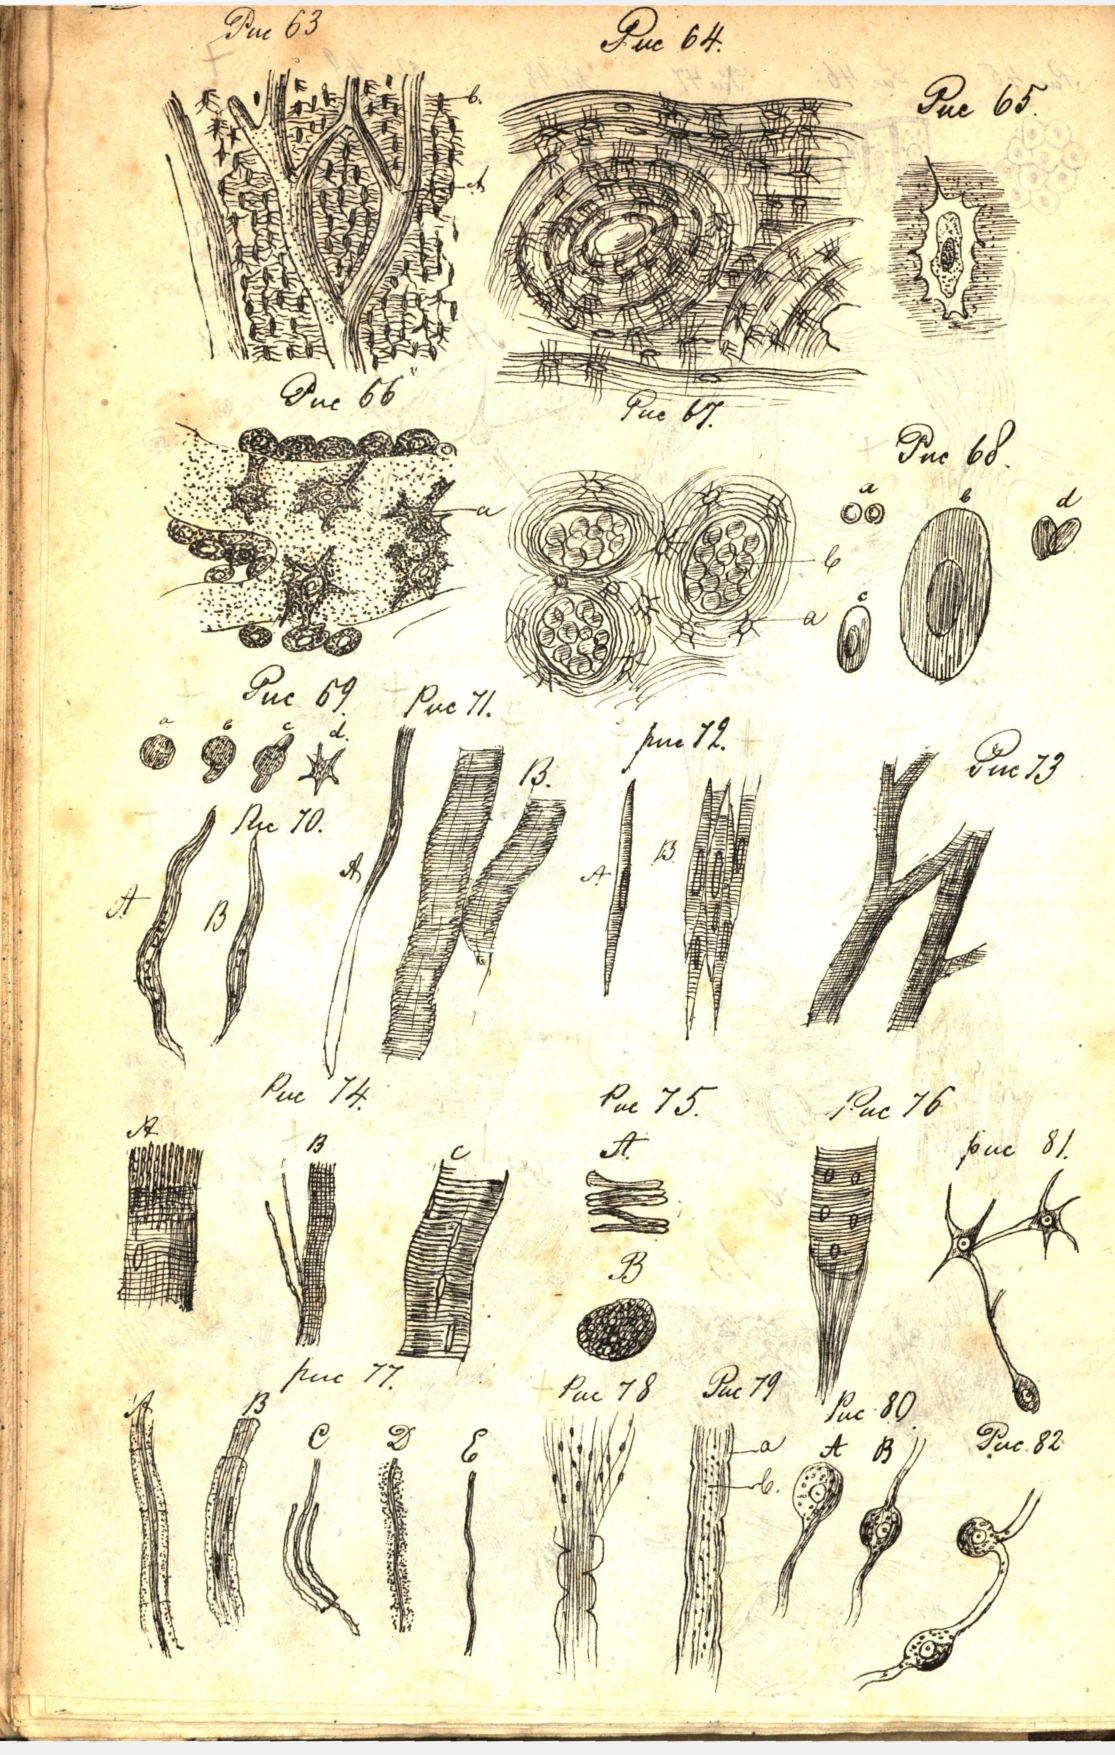 Рис 63
Рис 64.
Рис 65.
b.
A
Рис 66
Рис 67.
Рис 68.
a
b
d
c
a
b
a
Рис 69
a
b
c
d.
Рис 71.
A
B.
рис 72.
A
B
Рис 73
Рис 70.
A
B
Рис 74.
A
B
C
Рис 75.
A.
B
Рис 76
рис 81.
рис 77.
A
B
C
D
E
Рис 78
Рис 79
a
b.
Рис 80.
A
B
Рис. 82